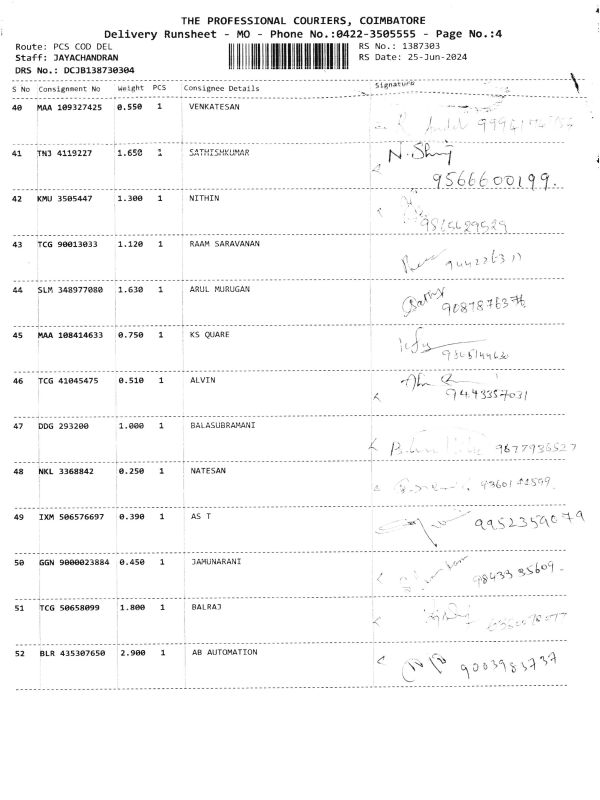 THE PROFESSIONAL COURIERS, COIMBATORE
Delivery Runsheet - MO - Phone No.:0422-3505555 - Page No.:4
Route: PCS COD DEL RS No.: 1387303
Staff: JAYACHANDRAN RS Date: 25-Jun-2024
DRS No.: DCJB138730304
S No Consignment No Weight PCS Consignee Details Signature
40 MAA 109327425 0.550 1 VENKATESAN
41 TNJ 4119227 1.650 1 SATHISHKUMAR N. Shij
9566600199.
42 KMU 3505447 1.300 1 NITHIN
43 TCG 90013033 1.120 1 RAAM SARAVANAN
44 SLM 348977080 1.630 1 ARUL MURUGAN
9087876376
45 MAA 108414633 0.750 1 KS QUARE
46 TCG 41045475 0.510 1 ALVIN
9443357031
47 DDG 293200 1.000 1 BALASUBRAMANI
9677936527
48 NKL 3368842 0.250 1 NATESAN
49 IXM 506576697 0.390 1 AS T 9952359079
50 GGN 9000023884 0.450 1 JAMUNARANI
9843335609.
51 TCG 50658099 1.800 1 BALRAJ
52 BLR 435307650 2.900 1 AB AUTOMATION
9003983737